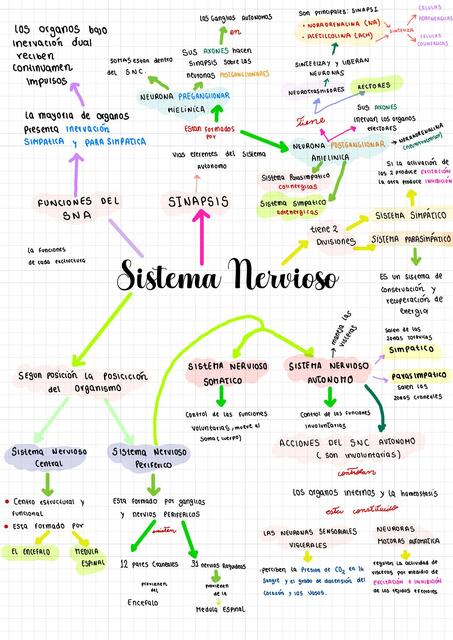 los organos bajo
inervación dual
reciben
continuamen
impulsos
La mayoria de organos
Presenta inervación
SIMPATICA y PARA SIMPATICA
FUNCIONES DEL
SNA
las funciones
de cada estructura
los Ganglios autonomos
en
Sus AXONES hacen
Sinapsis sobre las
neuronas POSTGANGLIONARES
SOMAS están dentro
del S N C
NEURONA PREGANGLIONAR
MIELINICA
Estan formados
por
Vias eferentes del Sistema
Autonomo
SINAPSIS
Son principales: SINAPSI
• NORADRENALINA (NA)
• ACETILCOLINA (ACH)
SINTETIZA
CELULAS
ADRENERGICAS
CELULAS
COLINERGICAS
SINTETIZ y LIBERAN
NEURONAS
NEUROTRASMISORES
RECTORES
Sus AXONES
inervan los organos
efectores
Tiene
NEURONA POSTGANGLIONAR
AMIELINICA
NORADRENALINA
Sistema Parasimpatico
colinergicas
Sistema Simpatico
adrenergicas
Si la activacion de
los 2 produce EXCITACIÓN
la otra produce INHIBICIÓN
tiene 2
Divisiones
SISTEMA SIMPÁTICO
SISTEMA PARASIMPÁTICO
ES un sistema de
conservación y
recuperación de
Energia
Sistema Nervioso
Segun posición la posicición
del Organismo
Sistema Nervioso
Central
• Centro estructural y
funcional
• Esta formado por
EL ENCEFALO
MEDULA
ESPINAL
Sistema Nervioso
Periferico
Esta formado por ganglios
y nervios perifericos
emiten
12 pares Craneales
provienen
del
Encefalo
31 nervios
provienen
de la
Medula Espinal
SISTEMA NERVIOSO
SOMATICO
Control de las funciones
voluntarias, mueve al
soma (cuerpo)
SISTEMA NERVIOSO
AUTONOMO
maneja las
visceras
Salen de las
zonas toraxicas
Simpatico
parasimpatico
Salen las
zonas craneales
Control de las funciones
involuntarias
ACCIONES DEL SNC AUTONOMO
( son involuntarias)
controlan
los organos internos y la homestasis
esta constituido
LAS NEURONAS SENSORIALES
VISCERALES
perciben la Presion de CO2 en la
Sangre y el grado de distension del
corazón y los vasos.
NEURORAS
MOTORAS AUTOMATICA
regulan la actividad de
visceras por medio de
EXCITACION o INHIBICION
de los tejidos efectores